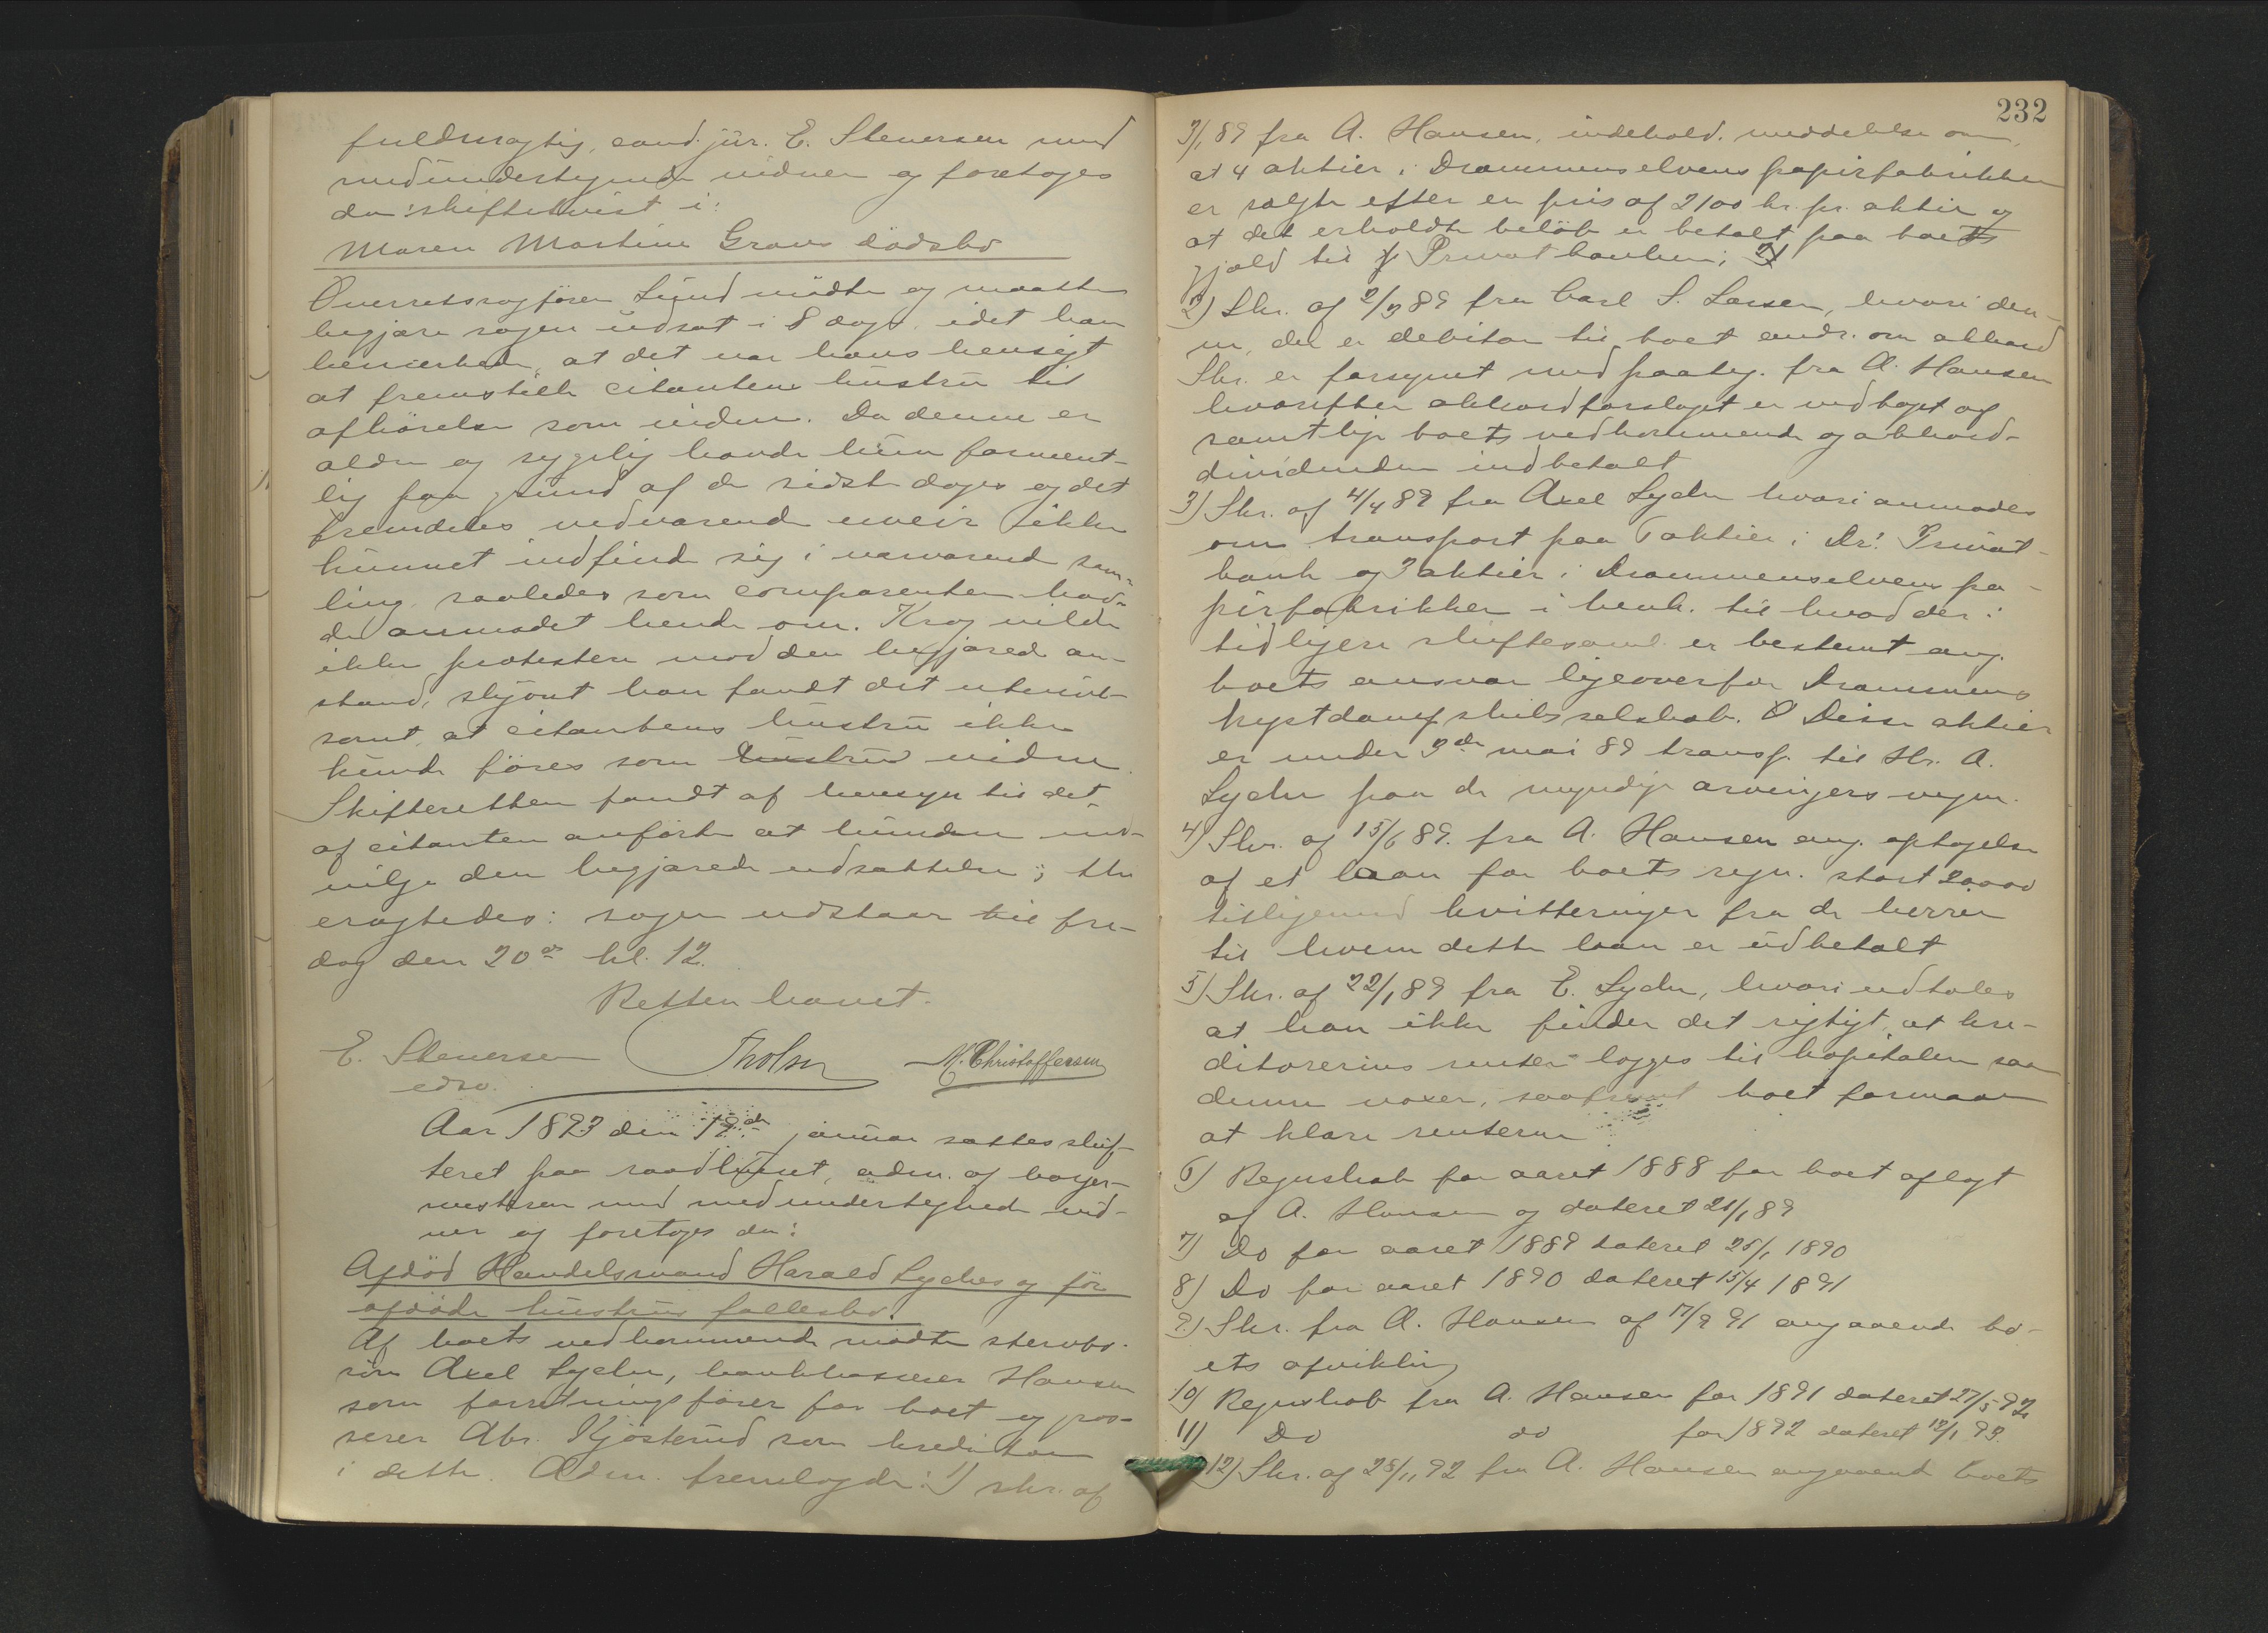 fuldmægtig, cand. jur. E. Stenersen med
medundertegnede vidner og foretoges
da: skiftetvist i:
Maren Martine Gravs dødsbo
Overretssagfører Lund mødte og maatte
begjære sagen udsat i 8 dage, idet han
bemærkede, at det var hans hensigt
at fremstille citantens hustru til
afhørelse som vidne. Da denne er
aldre og sygelig havde hun forment-
lig paa grund af de sidste dages og det
fremdeles vedvarende uveir ikke
kunnet indfinde sig i nærværende sam-
ling, saaledes som comparenten hav-
de anmodet hende om. Krag vilde
ikke protestere mod den begjærede an-
stand, skjønt han fandt det utvivl-
somt, at citantens hustru ikke
kunde føres som hustru vidne.
Skifteretten fandt af hensyn til det
af citanten anførte at kunne ind-
vilge den begjærede udsættelse; thi
eragtedes: sagen udstaar til fre-
dag den 20de kl. 12.
Retten hævet.
E. Stenersen Tholsen M. Christoffersen
edsv.
Aar 1893 den 19de januar sattes skif-
teret paa raadhuset, adm. af borger-
mesteren med medundertegnede vid-
ner og foretoges da:
Afdød Handelsmand Harald Lyches og før
afdøde hustrus fællesbo.
Af boets vedkommende mødte sterbo-
Axel Lyche, bankkasserer Hansen
som forretningsfører for boet og pros-
serer Abr. Kjøsterud som kreditor
i dette. Adm. fremlagde: 1) skr. af
232
3/1 89 fra A. Hansen, indehold. meddelelse om,
at 4 aktier i Drammenselvens papirfabrikker
er solgte efter en pris af 2100 kr. pr. aktie og
at det erholdte beløb er betalt paa boets
gjæld til Privatbanken; 2)
2) Skr. af 2/3 89 fra Carl S. Larsen, hvori den-
ne, der er debitor til boet andr. om akkord
Skr. er forsynet med paateg. fra A. Hansen
hvorefter akkordforslaget er vedtaget af
samtlige boets vedkommende og akkord-
dividenden indbetalt
3) Skr. af 4/4 89 fra Axel Lyche hvori anmodes
om transport paa 6 aktier i Dr. Privat-
bank og 3 aktier i Drammenselvens pa-
pirfabrikker i henh. til hvad der i
tidligere skiftesaml. er bestemt ang.
boets ansvar ligeoverfor Drammens
kystdampskibsselskab. Disse aktier
er under 3de mai 89 transp. til Hr. A.
Lyche paa de myndige arvingers vegne.
4) Skr. af 15/6 89. fra A. Hansen ang. optagelse
af et laan for boets regn. stort 20.000
tilligemed kvitteringer fra de herrer
til hvem dette laan er udbetalt
5) Skr. af 22/1 89 fra E. Lyche, hvori udtales
at han ikke finder det rigtigt, at kre-
ditorernes renter lægges til kapitalen saa
denne voxer, saafremt boet formaar
at klare renterne
6) Regnskab for aaret 1888 for boet aflagt
af A. Hansen og dateret 21/1 89
7) Do for aaret 1889 dateret 25/1 1890
8) Do for aaret 1890 dateret 15/4 1891
9) Skr. fra A. Hansen af 17/9 91 angaaende bo-
ets afvikling
10) Regnskab fra A. Hansen for 1891 dateret 27/5 92
11) Do do for 1892 dateret 12/1 93.
12) Skr. af 28/11 92 fra A. Hansen angaaende boets